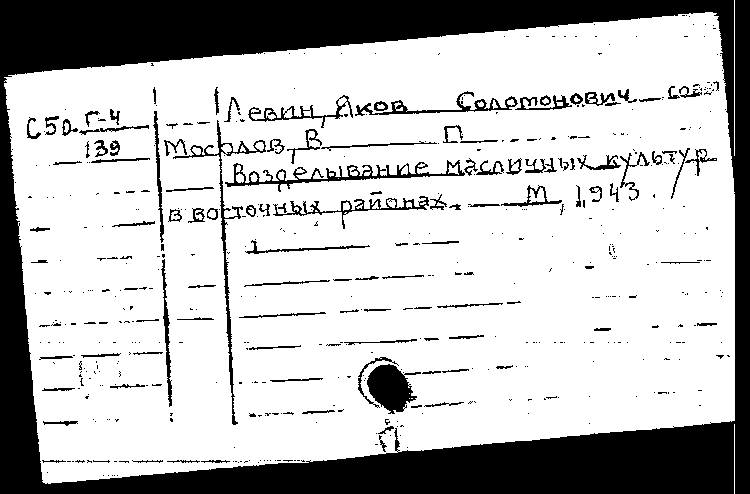 Левин, Яков Соломонович совет
С5о. Г-4
139
Мосолов, В П
Возделывание масличных культур
в восточных районах. М, 1943.
1